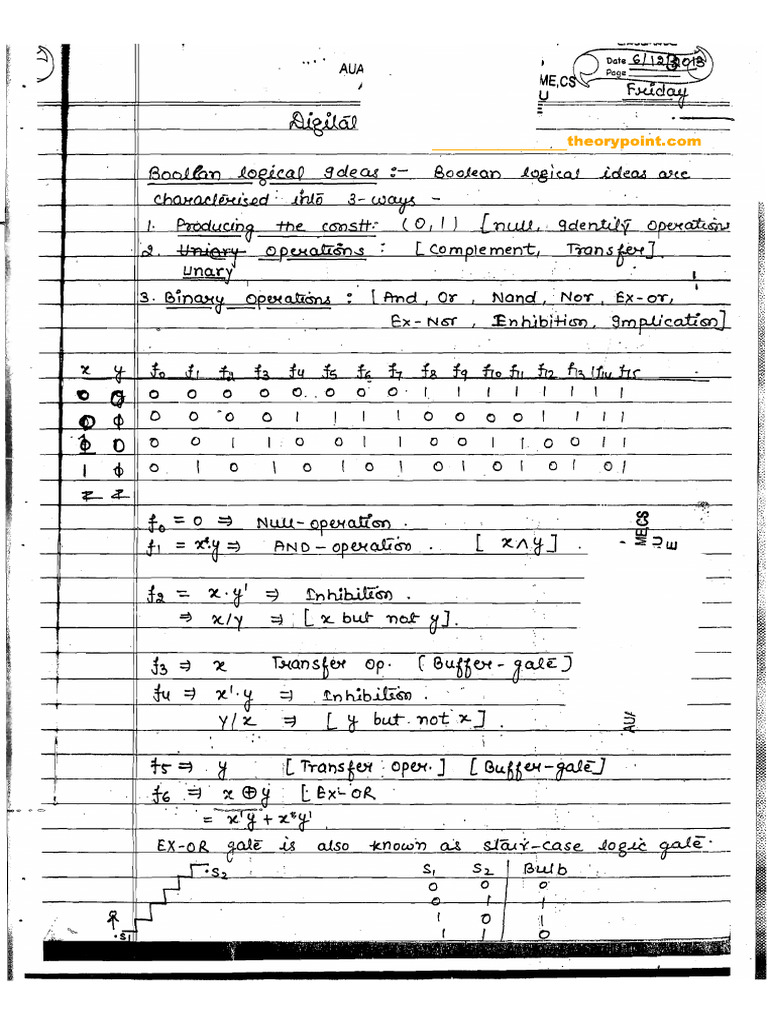 AUA
ME,CS
U
E
Date 6/12/2013
Page
Friday
Digital
theorypoint.com
Boollan logical Ideas :- Boolean logical ideas are
characterised into 3-ways -
1. Producing the constt: (0,1) [null, Identify operation
2. Uniary operations : [Complement, Transfer].
Unary
3. Binary operations : [And, Or, Nand, Nor, Ex-or,
Ex-Nor, Inhibition, Implication]
x y f0 f1 f2 f3 f4 f5 f6 f7 f8 f9 f10 f11 f12 f13 f14 f15
0 0 0 0 0 0 0 0 0 0 1 1 1 1 1 1 1 1
0 1 0 0 0 0 1 1 1 1 0 0 0 0 1 1 1 1
1 0 0 0 1 1 0 0 1 1 0 0 1 1 0 0 1 1
1 1 0 1 0 1 0 1 0 1 0 1 0 1 0 1 0 1
z z
f0 = 0 ⇒ Null-operation.
f1 = x·y ⇒ AND-operation. [x∧y].
ME,CS
U
E
f2 = x·y' ⇒ Inhibition.
⇒ x/y ⇒ [x but not y].
f3 ⇒ x Transfer Op. (Buffer-gate)
f4 ⇒ x'·y ⇒ Inhibition.
y/x ⇒ [y but not x].
AUA
f5 ⇒ y [Transfer Oper.] [Buffer-gate]
f6 ⇒ x ⊕ y [EX-OR
= x'y + x·y'
EX-OR gate is also known as stair-case logic gate.
S2
S1
S1 S2 Bulb
0 0 0
0 1 1
1 0 1
1 1 0